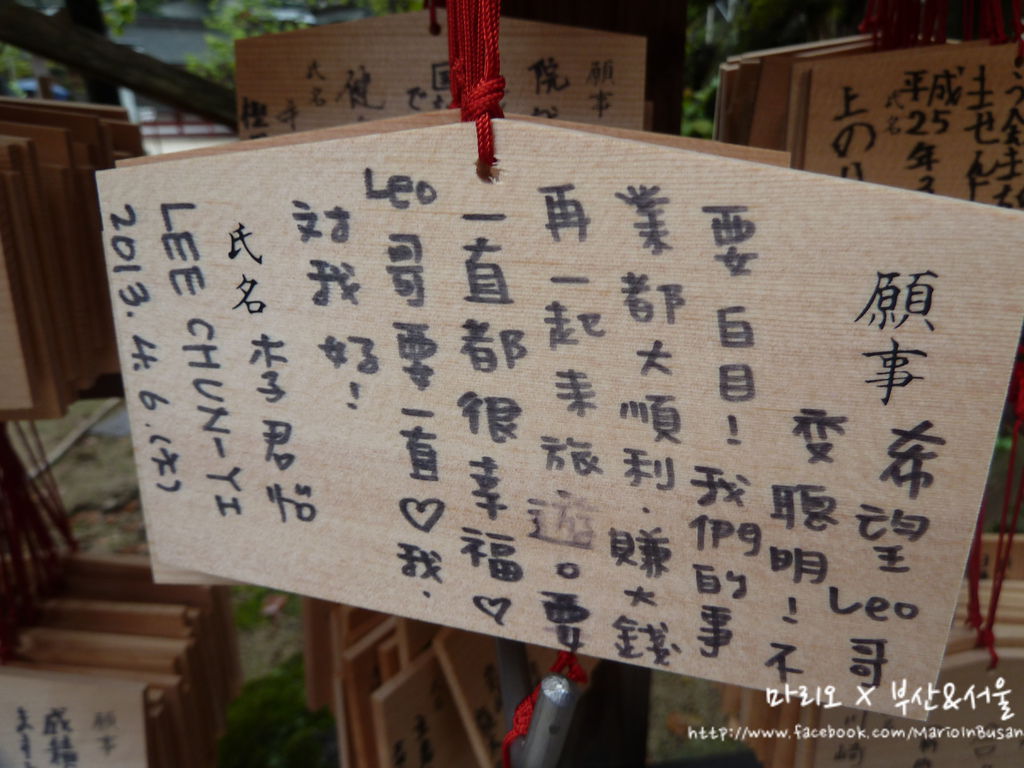 願事
希望Leo哥
變聰明！不
要白目！我們的事
業都大順利．賺大錢
再一起來旅遊。要
一直都很幸福♡
Leo哥要一直♡我．
對我好！
氏名 李君怡
LEE CHUN-YI
2013.4.6.(六)
願事
院
氏名
健
成
平成25年
氏名
上の
願事
成
마리오 X 부산&서울
http://www.facebook.com/MarioInBusan